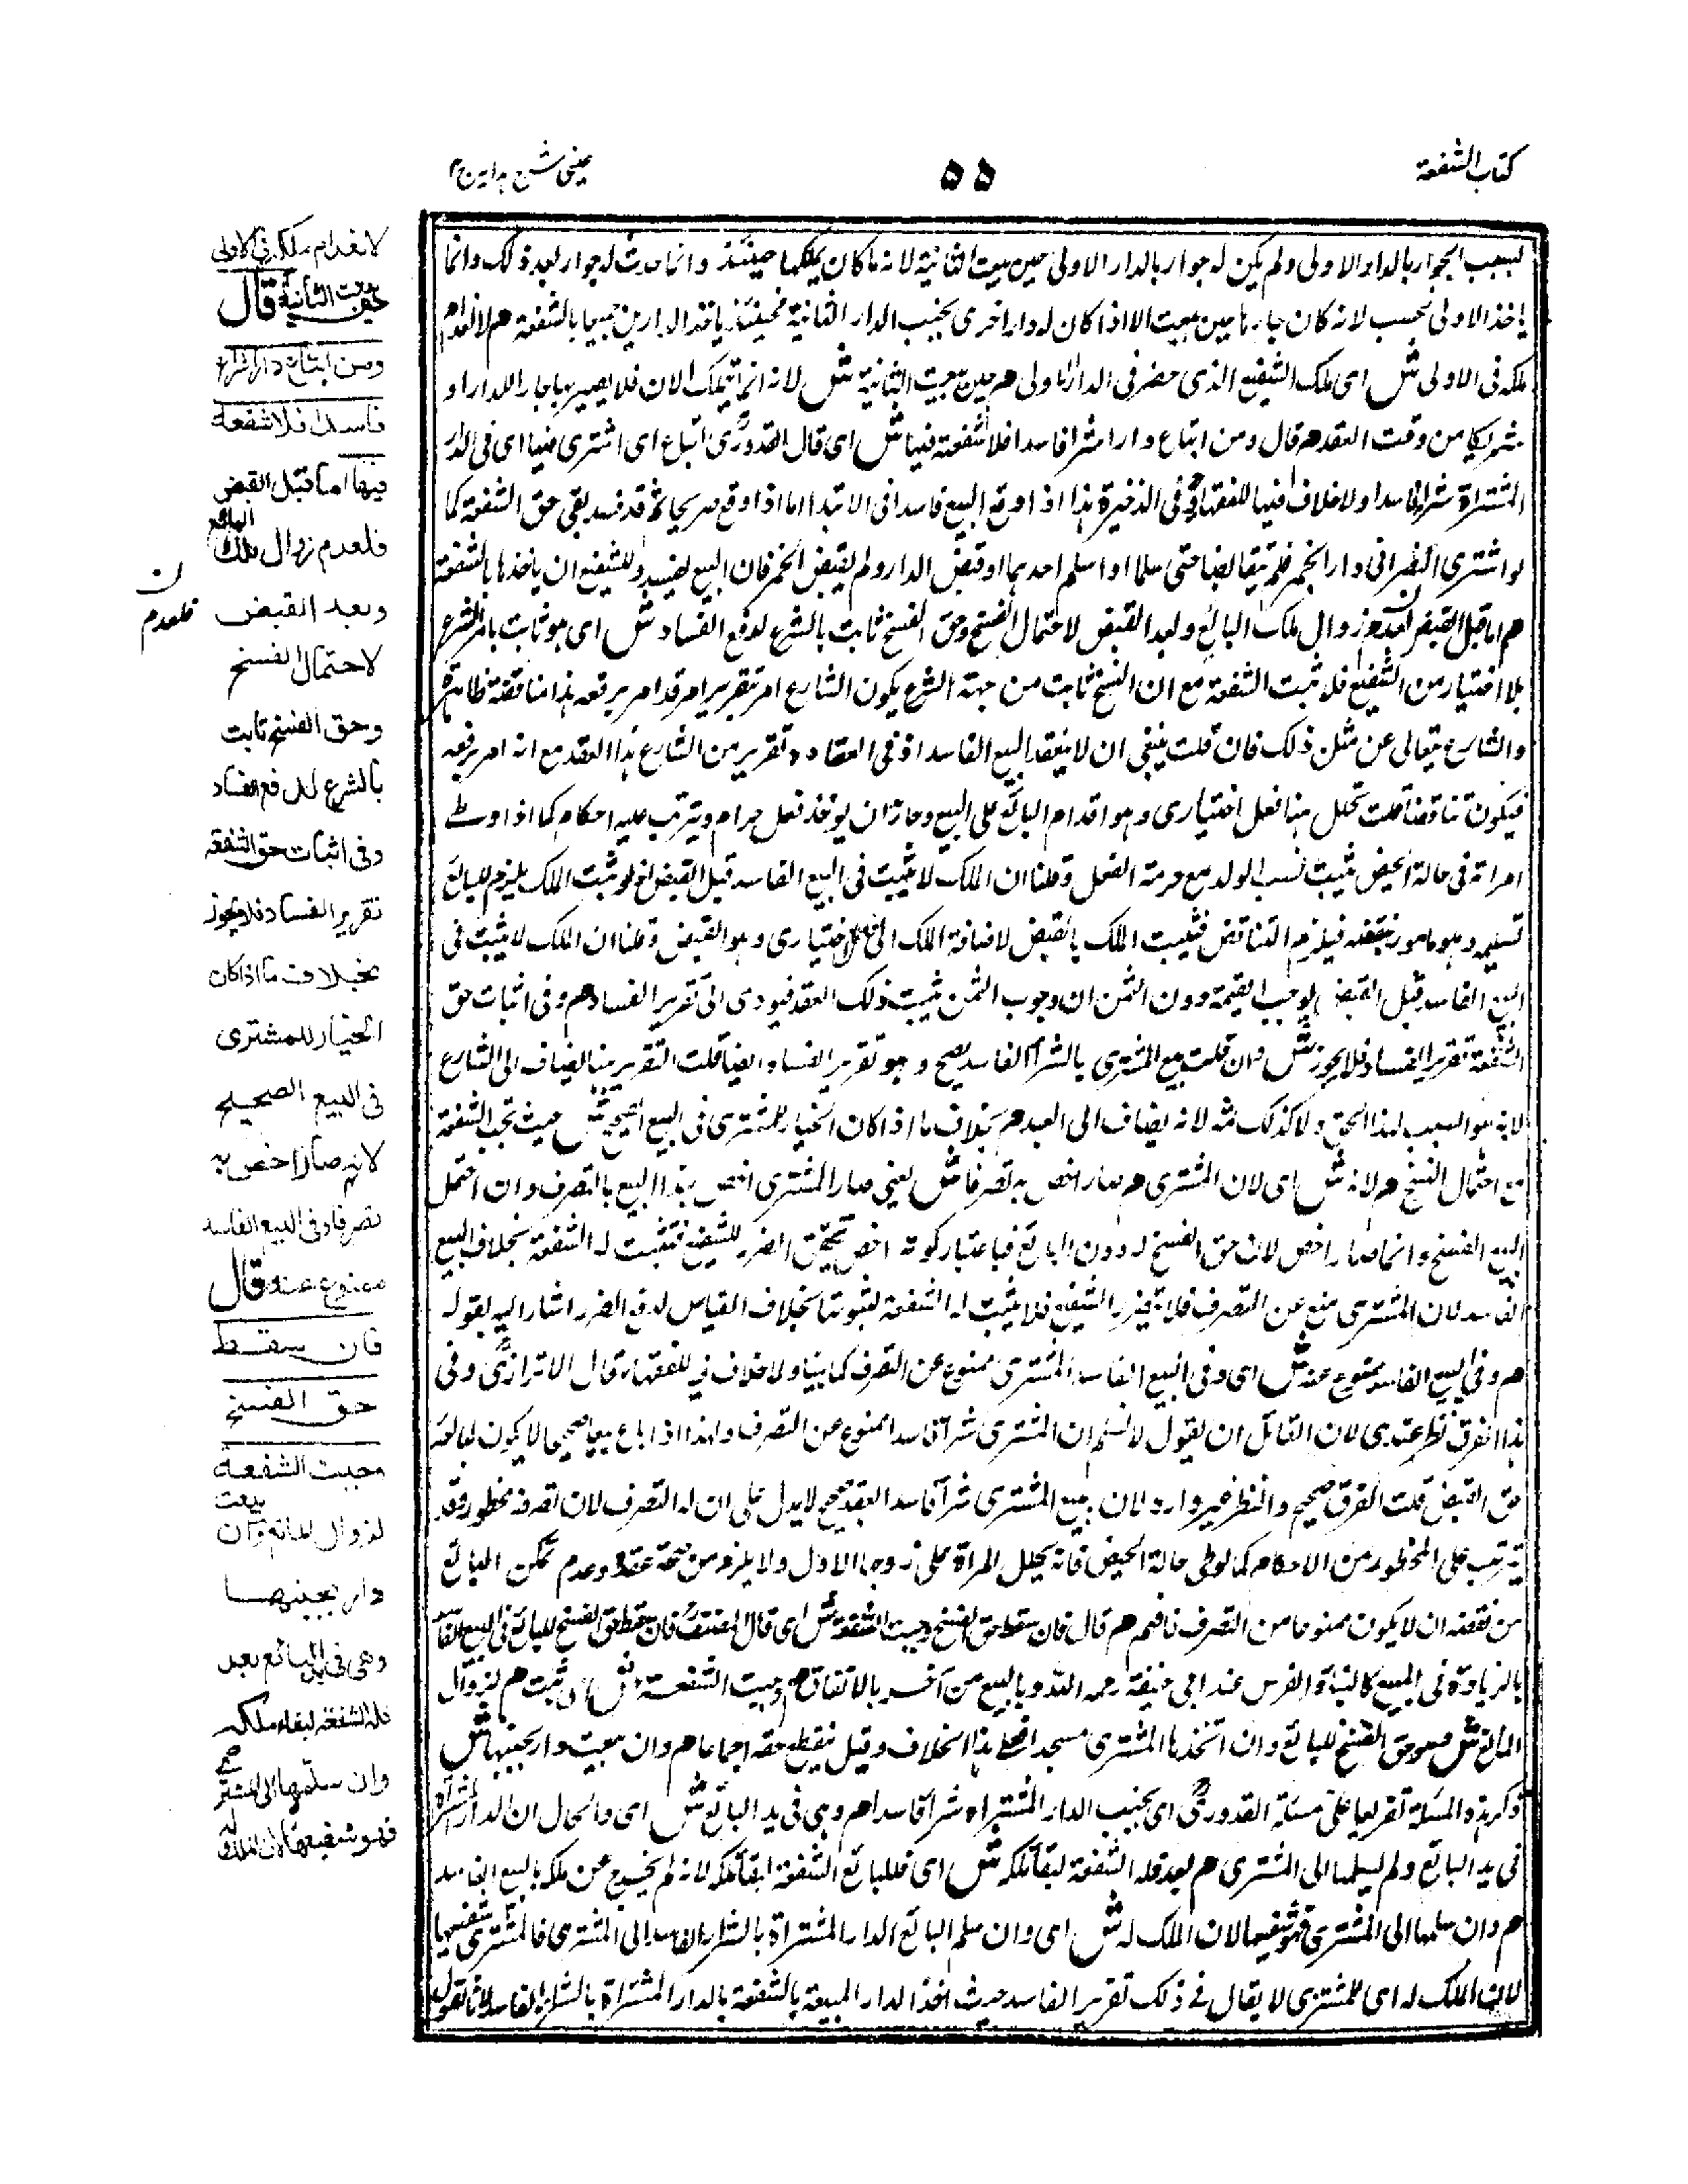 كتاب الشفعة
٥٥
عينى شرح هداية ج ٣
لسبب الجوار بالدار الاولى ولم يكن له جوار بالدار الاولى حين بيعت الثانية لانه ما كان يملكها حينئذ وانما حدث له جوار بعد ذلك وانما
ياخذ الاولى فحسب لانه كان جارها حين بيعت الا اذا كان له دار اخرى بجنب الدار الثانية فحينئذ ياخذ الدارين جميعا بالشفعة هم لانعدام
ملكه فى الاولى ش اى ملك الشفيع الذى حضر فى الدار الاولى هم حين بيعت الثانية ش لانه انما تملك الان فلا يصير بها جارا للدار او
شريكا من وقت العقد هم قال ومن ابتاع دارا شراء فاسدا فلا شفعة فيها ش اى قال القدورى ابتاع اى اشترى فيها اى فى الدار
المشتراة شراء فاسدا ولا خلاف فيها للفقهاء وفى الذخيرة هذا اذا وقع البيع فاسدا فى الابتداء اما اذا وقع صحيحا ثم قد فسد بقى حق الشفعة كما
لو اشترى النصرانى دارا بخمر فلم يتقابضا حتى سلما او اسلم احدهما او قبض الدار ولم يقبض الخمر فان البيع يفسد وللشفيع ان ياخذها بالشفعة
هم اما قبل القبض لعدم زوال ملك البائع وبعد القبض لاحتمال الفسخ وحق الفسخ ثابت بالشرع لدفع الفساد ش اى هو ثابت بامر الشرع
بلا اختيار من الشفيع فلا تثبت الشفعة مع ان الفسخ ثابت من جهة الشرع يكون الشارع امر بتقرير امر قد امر برفعه هذا مناقضة ظاهرة
والشارع يتعالى عن مثل ذلك فان قلت ينبغى ان لا ينعقد البيع الفاسد اذ فى انعقاده تقرير من الشارع هذا العقد مع انه امر برفعه
فيكون تناقضا قلت تخلل هنا فعل اختيارى وهو اقدام البائع على البيع وجاز ان يوخذ فعل حرام ويترتب عليه احكام كما اذا وطى
امراته فى حالة الحيض يثبت نسب الولد مع حرمة الفعل وقلنا ان الملك لا يثبت فى البيع الفاسد قبل القبض لو يثبت الملك يلزم للبائع
تسليمه وهو مامور بنقضه فيلزم التناقض فيثبت الملك بالقبض لاضافة الملك الى الفعل الاختيارى وهو القبض وقلنا ان الملك لا يثبت فى
البيع الفاسد قبل القبض يوجب القيمة دون الثمن ان وجوب الثمن يثبت ذلك العقد فيودى الى تقرير الفساد هم وفى اثبات حق
الشفعة تقرير الفساد فلا يجوز ش فان قلت بيع المشترى بالشراء الفاسد يصح وهو تقرير الفساد ايضا قلت التقرير هنا يضاف الى الشارع
لانه هو السبب لهذا الحق ولا كذلك ثمه لانه يضاف الى العبد هم بخلاف ما اذا كان الخيار للمشترى فى البيع الصحيح ش حيث تجب الشفعة
مع احتمال الفسخ هم لانه ش اى لان المشترى هم صار اخص به تصرفا ش يعنى صار المشترى اخص بهذا البيع بالتصرف وان احتمل
البيع الفسخ وانما صار اخص لان حق الفسخ له دون البائع فباعتبار كونه اخص تحقق الضرر للشفيع فتثبت له الشفعة بخلاف البيع
الفاسد لان المشترى منع عن التصرف فلا يتضرر الشفيع فلا يثبت له الشفعة لثبوتها بخلاف القياس لدفع الضرر اشار اليه بقوله
هم وفى البيع الفاسد ممنوع عنه ش اى وفى البيع الفاسد المشترى ممنوع عن التصرف كما بينا ولا خلاف فيه للفقهاء قال الاترازى وفى
هذا الفرق نظر عندى لان القائل ان يقول لا نسلم ان المشترى شراء فاسدا ممنوع عن التصرف ولهذا اذا باع بيعا صحيحا لا يكون لبائعه
حق القبض قلت الفرق صحيح والنظر غير وارد لان بيع المشترى شراء فاسدا العقد صحيح لا يدل على ان له التصرف لان تصرفه محظور وقد
يترتب على المحظور من الاحكام كما لوطى حالة الحيض فانه يحلل المراة على زوجها الاول ولا يلزم من صحة عقده وعدم تمكن البائع
من نقضه ان لا يكون ممنوعا من التصرف فافهم هم قال فان سقط حق الفسخ وجبت الشفعة ش اى قال المصنف فان سقط حق الفسخ للبائع فى البيع الفاسد
بالزيادة فى المبيع كالبناء والغرس عند ابى حنيفة رحمه الله وبالبيع من آخر بالاتفاق هم وجبت الشفعة ش اى ثبت هم لزوال
المانع ش وهو حق الفسخ للبائع وان اتخذها المشترى مسجدا فعلى هذا الخلاف وقيل ينقطع حقه اجماعا هم وان بيعت دار بجنبها ش
ذكر هذه المسئلة تفريعا على مسئلة القدورى اى بجنب الدار المشتراه شراء فاسدا هم وهى فى يد البائع ش اى والحال ان الدار المشتراة
فى يد البائع ولم يسلمها الى المشترى هم بعد فله الشفعة لبقاء ملكه ش اى فللبائع الشفعة لبقاء ملكه لانه لم يخرج عن ملكه بالبيع الفاسد
هم وان سلمها الى المشترى فهو شفيعها لان الملك له ش اى وان سلم البائع الدار المشتراة بالشراء الفاسد الى المشترى فالمشترى شفيعها
لان الملك له اى للمشترى لا يقال فى ذلك تقرير الفاسد حيث اخذ الدار المبيعة بالشفعة بالدار المشتراة بالشراء الفاسد لانا نقول
لانعدام ملكه فى الاولى
حين بيعت الثانية قال
ومن ابتاع دارا شراء
فاسدا فلا شفعة
فيها اما قبل القبض
فلعدم زوال ملك البائع
وبعد القبض
ن
فلعدم
لاحتمال الفسخ
وحق الفسخ ثابت
بالشرع لدفع الفساد
وفى اثبات حق الشفعة
تقرير الفساد فلا يجوز
بخلاف ما اذا كان
الخيار للمشترى
فى البيع الصحيح
لانه صار اخص به
تصرفا وفى البيع الفاسد
ممنوع عنه قال
فان سقط
حق الفسخ
وجبت الشفعة
لزوال المانع وان بيعت
دار بجنبها
وهى فى يد البائع بعد
فله الشفعة لبقاء ملكه
وان سلمها الى المشترى
فهو شفيعها لان الملك له